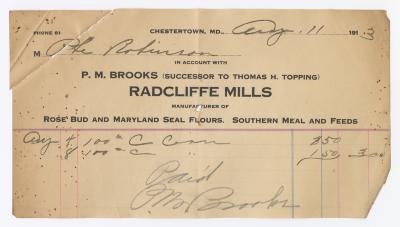 PHONE 61
CHESTERTOWN, MD., Aug. 11 1913
M Robinson
IN ACCOUNT WITH
P. M. BROOKS (SUCCESSOR TO THOMAS H. TOPPING)
RADCLIFFE MILLS
MANUFACTURER OF
ROSE BUD AND MARYLAND SEAL FLOURS. SOUTHERN MEAL AND FEEDS
Aug 4 100# C Corn
8 100# C 1 50
Paid
PM Brooks